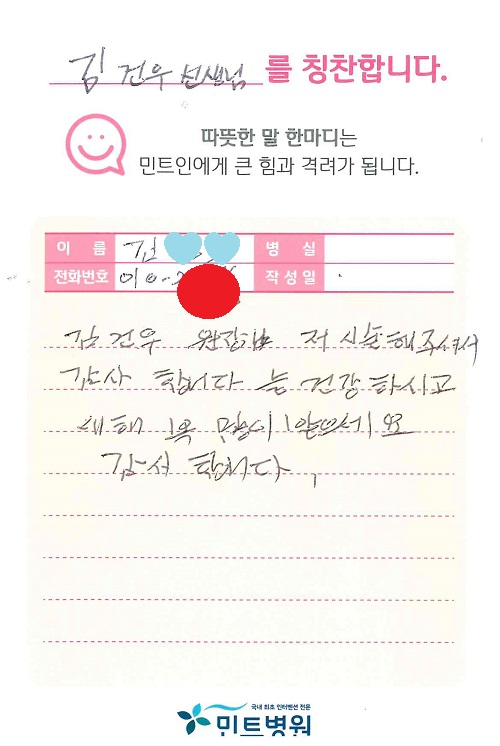 김 건우 선생님 를 칭찬합니다.
따뜻한 말 한마디는
민트인에게 큰 힘과 격려가 됩니다.
이 름 김 병 실
전화번호 010-2 작성일
김 건우 원장님 저 시술해주셔서
감사 합니다 늘 건강하시고
새해 복 많이 받으세요
감사 합니다,
국내 최초 인터벤션 전문
민트병원